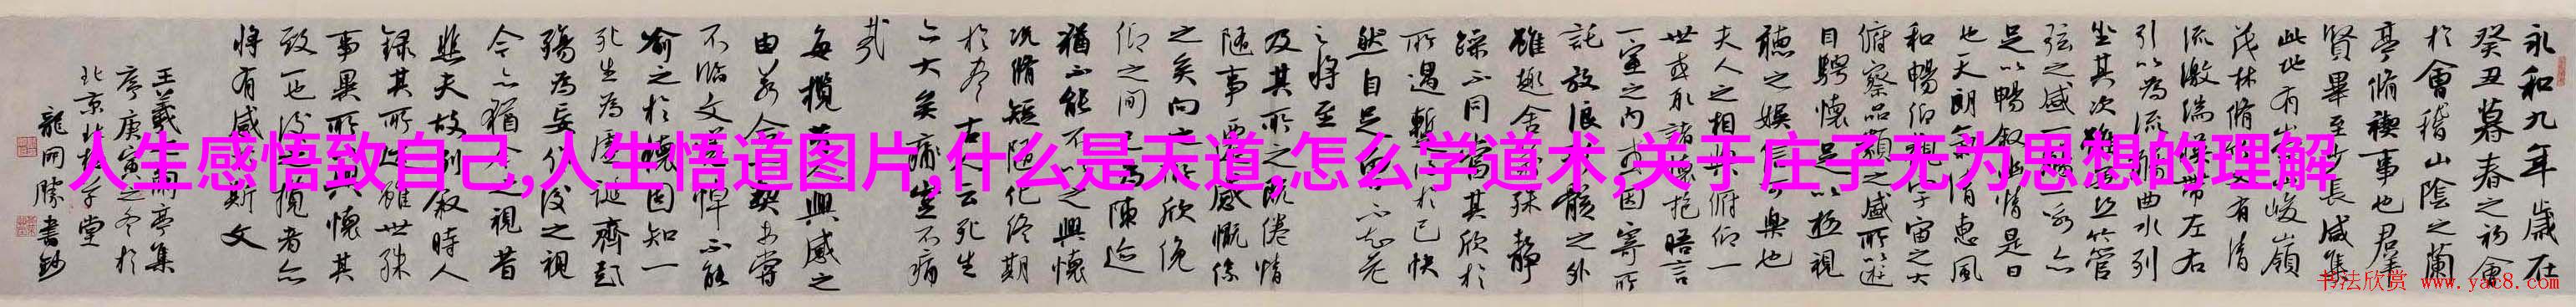 人生感悟致自己,人生悟道图片,什么是天道,怎么学道术,关于庄子无为思想的理解
永和九年歲在
癸丑暮春之初會
於會稽山陰之蘭
亭脩禊事也群
賢畢至少長咸集
此地有峻嶺
茂林脩有清
流激湍帶左右
引以為流曲水列
坐其次管
弦之盛一亦
足以暢敘情是日
也天朗氣清惠風
和暢仰觀宇宙之大
俯察品類之盛所以遊
目騁懷足以極視
聽之娛信可樂也
夫人之相與俯仰一
世或取諸懷抱晤言
一室之內或因寄所
託放浪骸之外
雖趣舍殊靜
躁不同當其欣於
所遇暫於己快
然自足不知老
之將至
及其所之既倦情
隨事遷感慨係
之矣向之欣俛
仰之間為陳迹
猶不能不以之興懷
況脩短隨化終期
於盡古人云死生
亦大矣痛豈不痛
哉
每攬昔人興感之
由若合契未嘗
不臨文嗟悼不能
喻之於懷固知一
死生為虛誕齊彭
殤為妄作後之視
今亦猶今之視昔
悲夫故列敘時人
錄其所雖世殊
事異所以興懷其
致一也後之攬者亦
將有感斯文
王羲之蘭亭集
序庚寅之冬於
北京草堂
龍開勝書鈔
书法欣赏 www.yac8.com